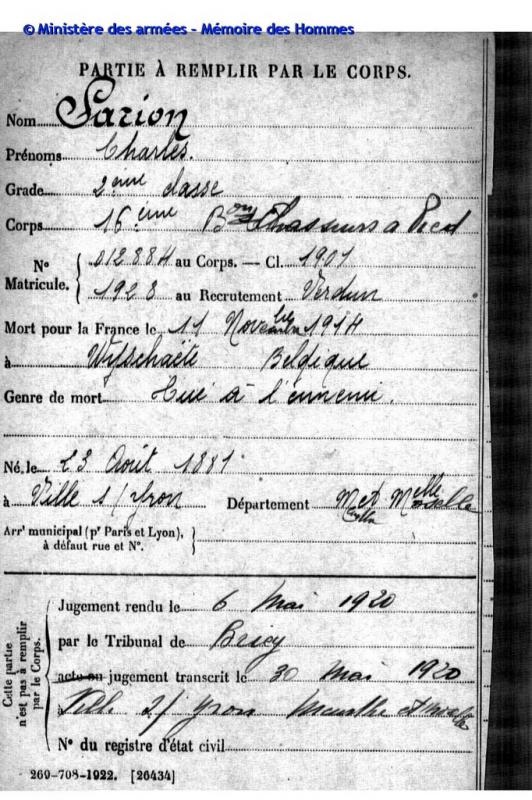 © Ministère des armées - Mémoire des Hommes
PARTIE À REMPLIR PAR LE CORPS.
Nom Sarion
Prénoms Charles.
Grade 2ème classe
Corps 16ème Bon Chasseurs a Pied
N° Matricule. 012884 au Corps. — Cl. 1901
1928 au Recrutement Verdun
Mort pour la France le 11 Novembre 1914
à Wytschaëte Belgique
Genre de mort Tué à l'ennemi.
Né le 23 Août 1881
à Ville s/ Yron Département Mthe Mselle
Arrt municipal (pr Paris et Lyon),
à défaut rue et N°.
Cette partie
n'est pas à remplir
par le Corps.
Jugement rendu le 6 Mai 1920
par le Tribunal de Briey
acte ou jugement transcrit le 30 mai 1920
à Ville s/ Yron Meurthe et Moselle
N° du registre d'état civil
269-708-1922. [26434]